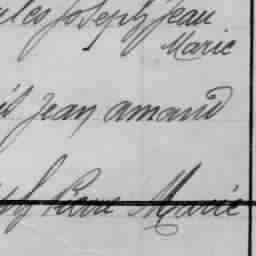 Joseph Jean
Marie
Jean amand
Pierre Marie